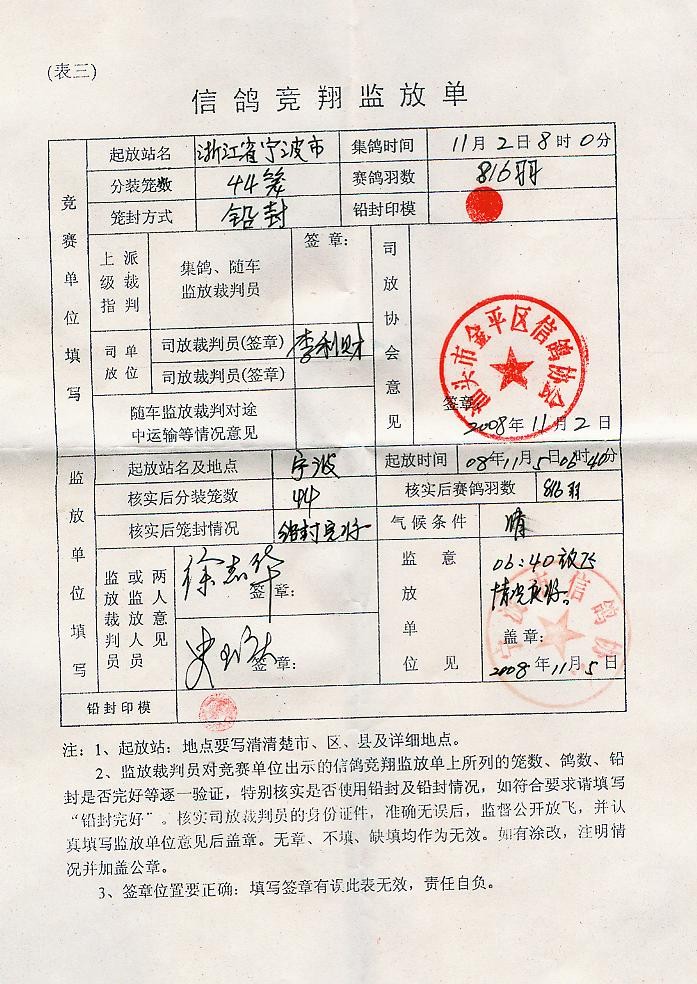 (表三)
信鸽竞翔监放单
竞赛单位填写
起放站名 浙江省宁波市 集鸽时间 11月2日8时0分
分装笼数 44笼 赛鸽羽数 816羽
笼封方式 铅封 铅封印模
上级指派裁判 集鸽、随车监放裁判员 签章:
司放单位 司放裁判员(签章) 李利财
司放裁判员(签章)
随车监放裁判对途中运输等情况意见
司放协会意见
汕头市金平区信鸽协会
签章
2008年11月2日
监放单位填写
起放站名及地点 宁波 起放时间 08年11月5日06时40分
核实后分装笼数 44 核实后赛鸽羽数 816羽
核实后笼封情况 铅封完好 气候条件 晴
监放裁判员或两监放人员意见
徐志华 签章:
签章:
监放单位意见
06:40放飞
情况良好。
宁波市信鸽协会
盖章:
2008年11月5日
铅封印模
注:1、起放站:地点要写清清楚市、区、县及详细地点。
2、监放裁判员对竞赛单位出示的信鸽竞翔监放单上所列的笼数、鸽数、铅
封是否完好等逐一验证,特别核实是否使用铅封及铅封情况,如符合要求请填写
“铅封完好”。核实司放裁判员的身份证件,准确无误后,监督公开放飞,并认
真填写监放单位意见后盖章。无章、不填、缺填均作为无效。如有涂改,注明情
况并加盖公章。
3、签章位置要正确:填写签章有误此表无效,责任自负。